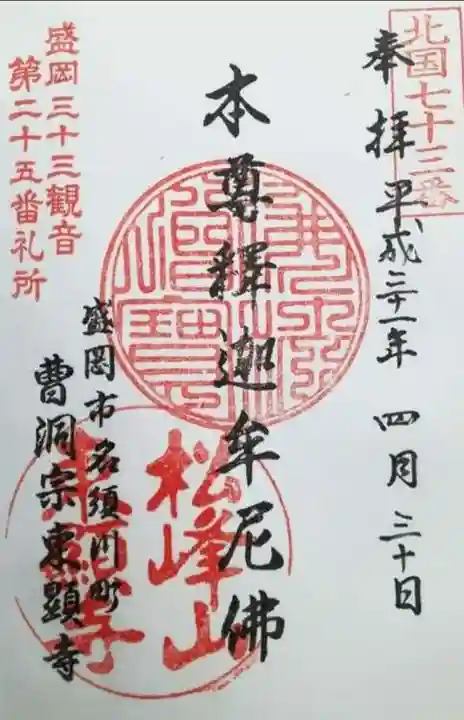 北国七十三番
奉拝 平成三十一年 四月 三十日
本尊釋迦牟尼佛
松峰山
東顕寺
盛岡市名須川町
曹洞宗東顕寺
盛岡三十三観音
第二十五番礼所